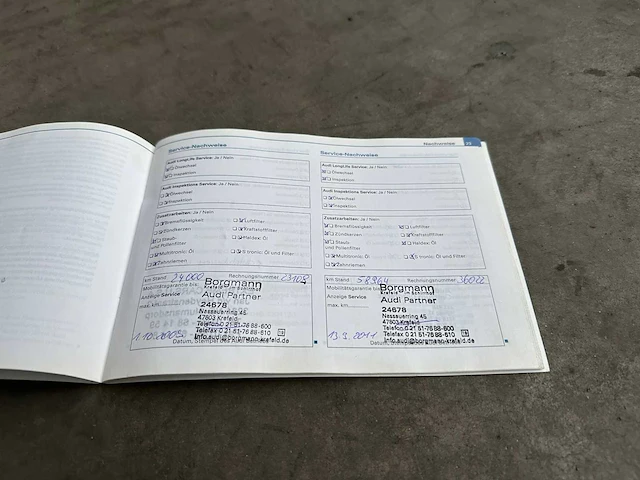 Service-Nachweise
Audi LongLife Service: Ja / Nein
Ölwechsel
Inspektion
Audi Inspektions Service: Ja / Nein
Ölwechsel
Inspektion
Zusatzarbeiten: Ja / Nein
Bremsflüssigkeit
Luftfilter
Zündkerzen
Kraftstofffilter
Staub- und Pollenfilter
Haldex: Öl
Multitronic: Öl
S tronic: Öl und Filter
Zahnriemen
km Stand
Rechnungsnummer
Mobilitätsgarantie bis:
Anzeige Service
max. km
Borgmann
Krefeld
Audi Partner
24678
Nassauerring 45
47803 Krefeld
Telefon 0 21 51-76 88-600
Telefax 0 21 51-76 88-610
info.audi@borgmann-krefeld.de
Datum, Stempel
Nachweise
Service-Nachweise
Audi LongLife Service: Ja / Nein
Ölwechsel
Inspektion
Audi Inspektions Service: Ja / Nein
Ölwechsel
Inspektion
Zusatzarbeiten: Ja / Nein
Bremsflüssigkeit
Luftfilter
Zündkerzen
Kraftstofffilter
Staub- und Pollenfilter
Haldex: Öl
Multitronic: Öl
S tronic: Öl und Filter
Zahnriemen
km Stand 58964 Rechnungsnummer 36022
Mobilitätsgarantie bis:
Anzeige Service
max. km
Borgmann
Krefeld
Audi Partner
24678
Nassauerring 45
47803 Krefeld
Telefon 0 21 51-76 88-600
Telefax 0 21 51-76 88-610
info.audi@borgmann-krefeld.de
Datum, Stempel